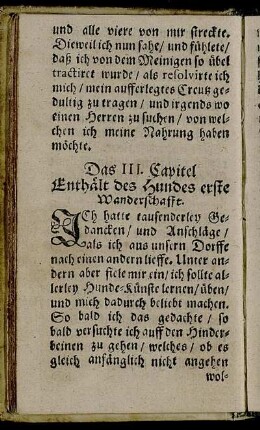 und alle viere von mir streckte.
Dieweil ich nun sahe/ und fühlete/
daß ich von dem Meinigen so übel
tractiret wurde/ als resolvirte ich
mich/ mein aufferlegtes Creutz ge-
dultig zu tragen/ und irgends wo
einen Herren zu suchen/ von wel-
chen ich meine Nahrung haben
möchte.
Das III. Capitel
Enthält des Hundes erste
Wanderschafft.
ICh hatte tausenderley Ge-
dancken/ und Anschläge/
als ich aus unsern Dorffe
nach einen andern lieffe. Unter an-
dern aber fiele mir ein/ ich sollte al-
lerley Hunde-Künste lernen/ üben/
und mich dadurch beliebt machen.
So bald ich das gedachte/ so
bald versuchte ich auff den Hinder-
beinen zu gehen/ welches/ ob es
gleich anfänglich nicht angehen
wol-